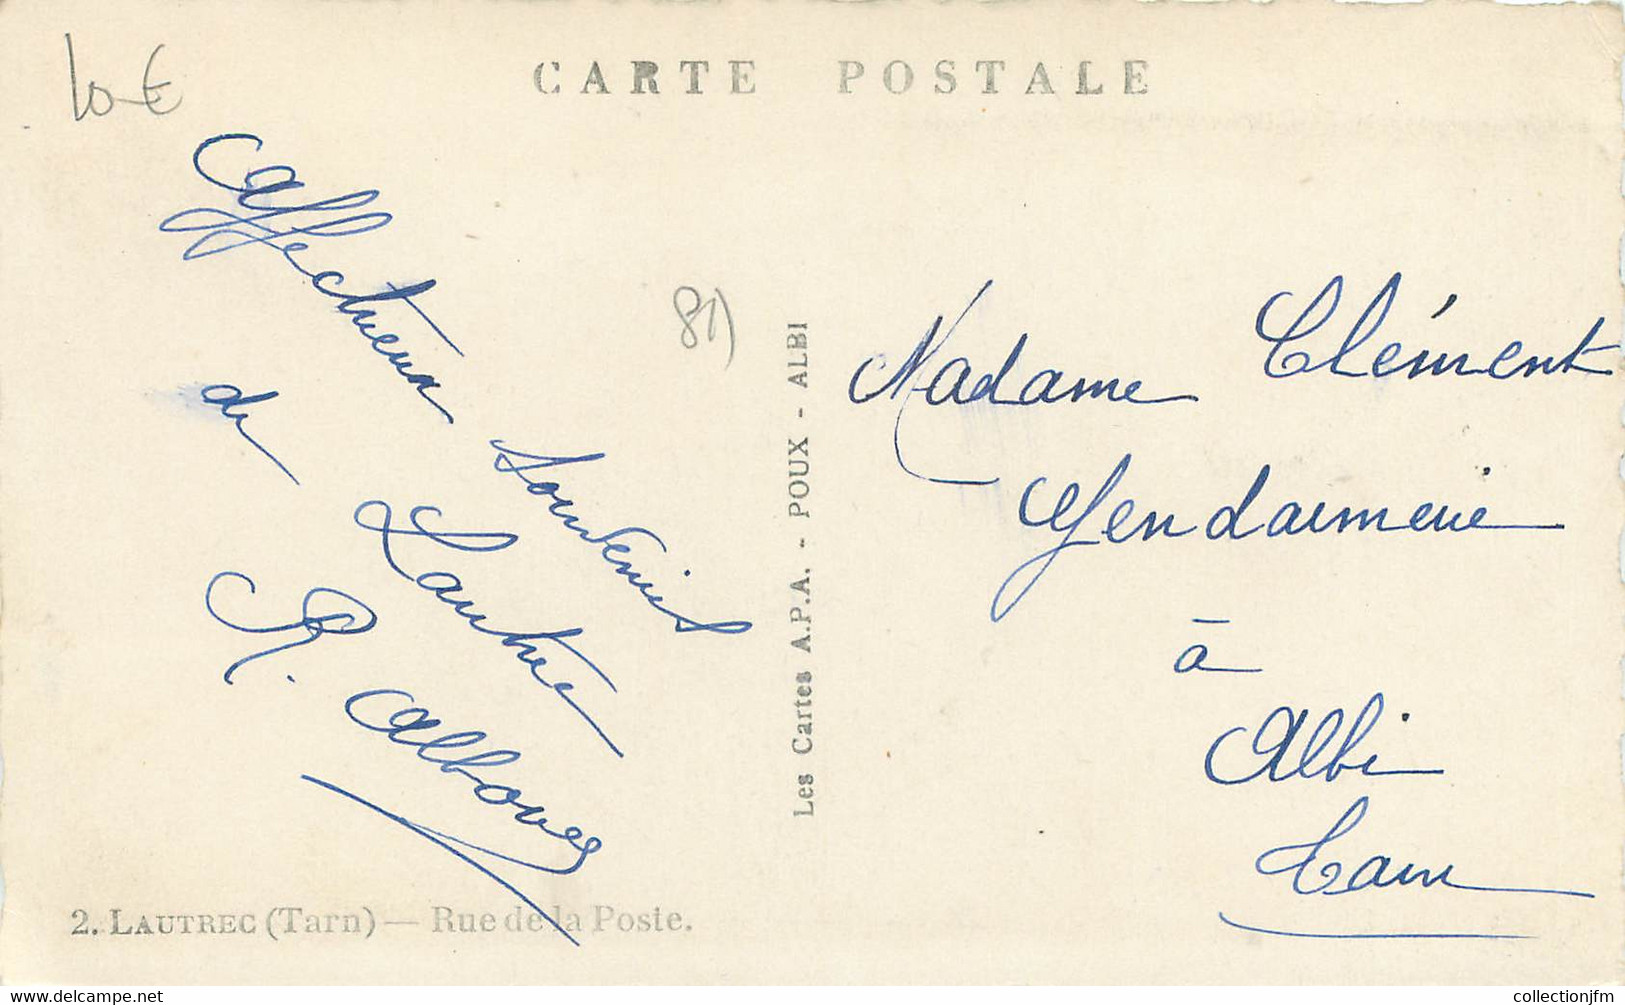 10 €
CARTE POSTALE
Affectueux Souvenirs
de Lautrec
R. Albouy
81)
Les Cartes A.P.A. - POUX - ALBI
Madame Clément
Gendarmerie
à
Albi
Tarn
2. LAUTREC (Tarn) — Rue de la Poste.
collectionjfm